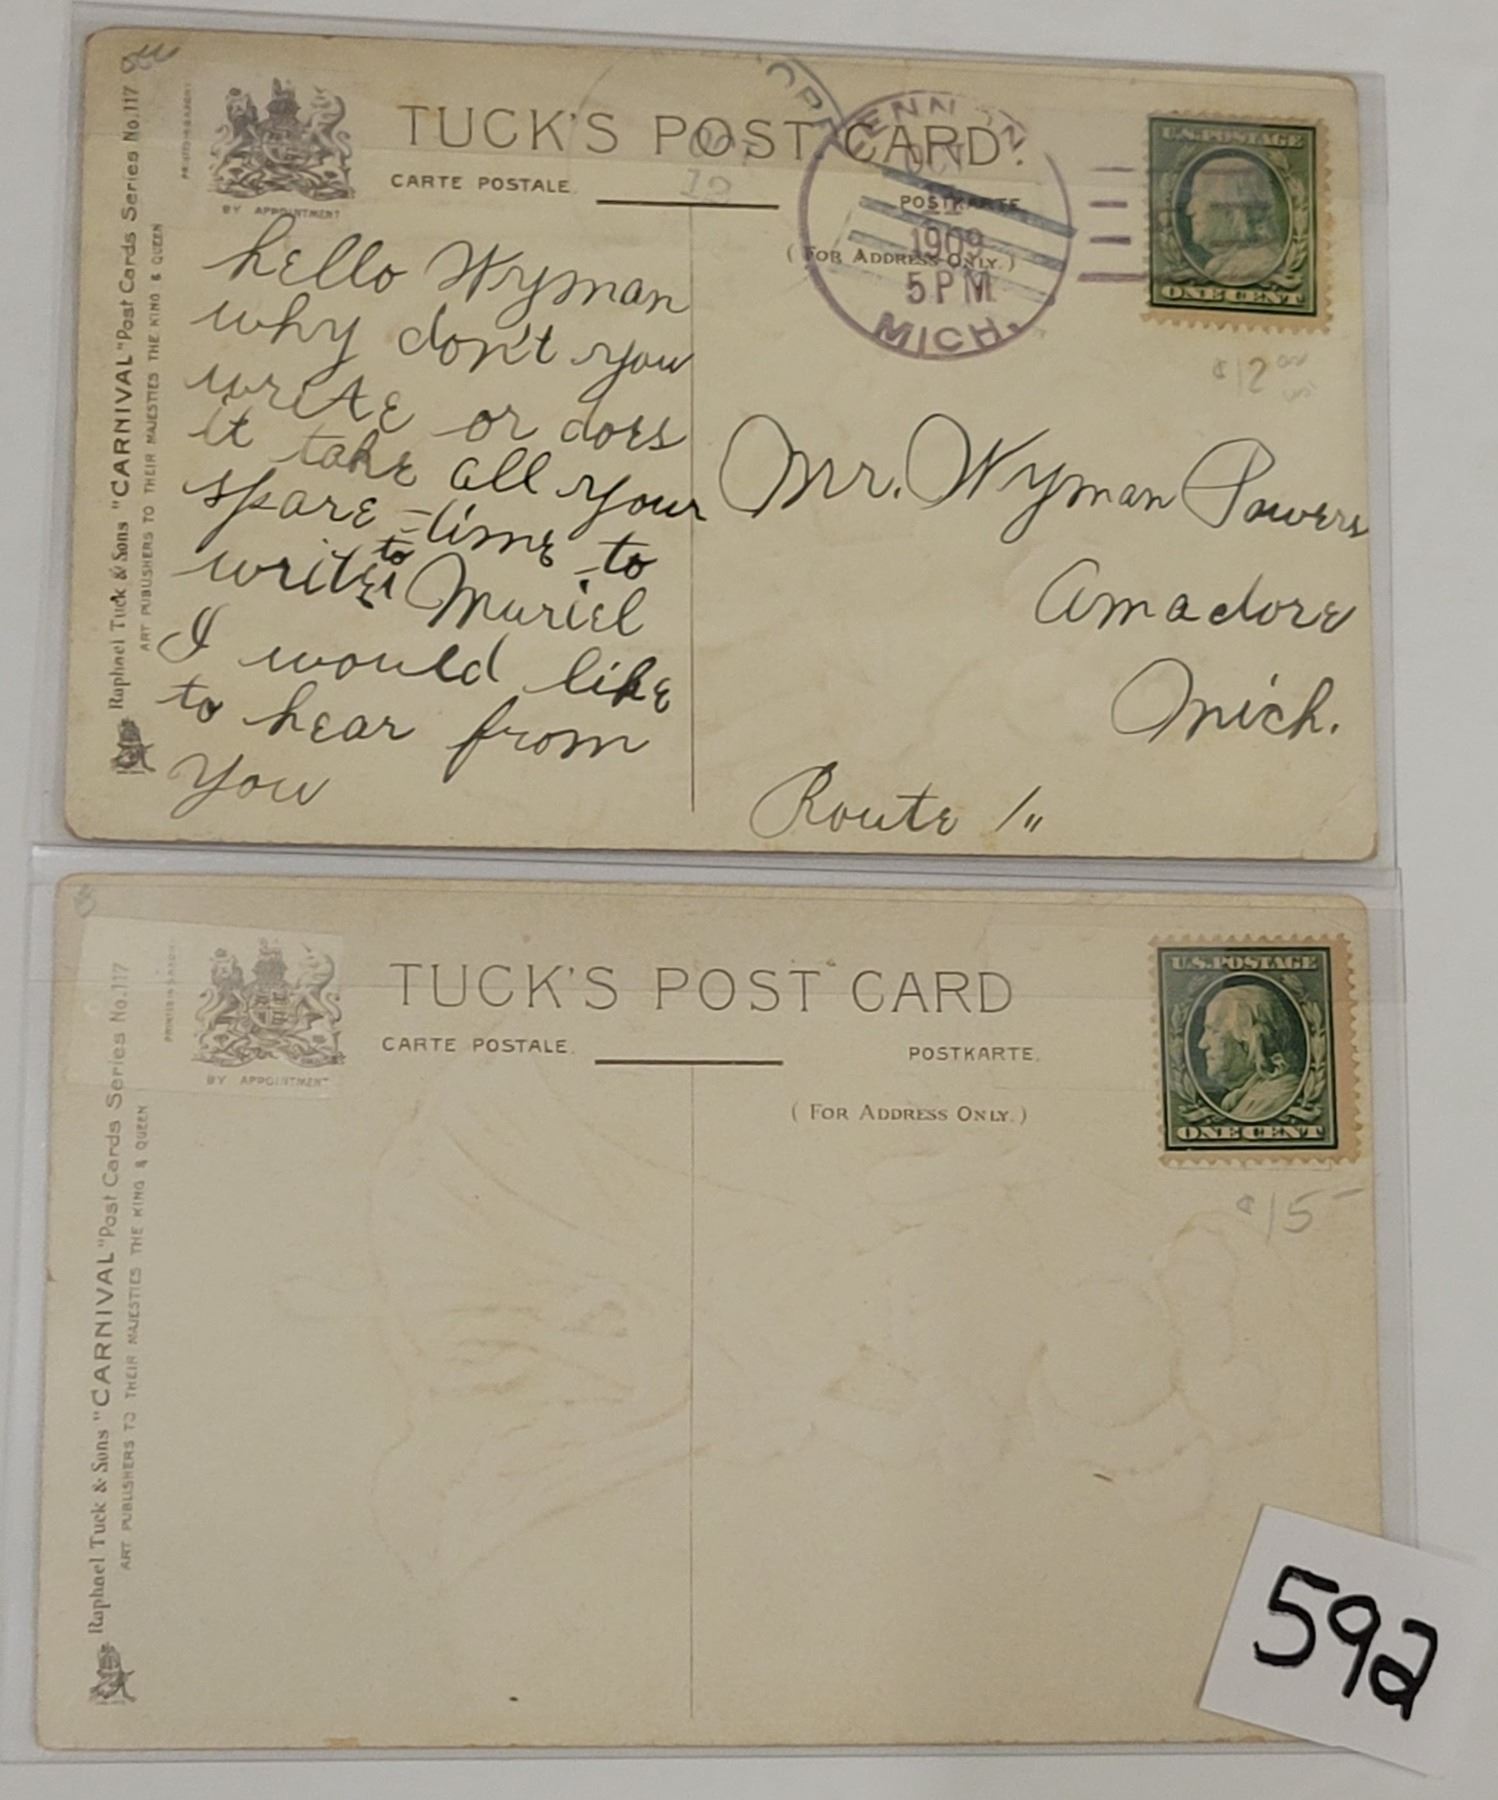 TUCK'S POST CARD.
CARTE POSTALE.
POSTKARTE
(FOR ADDRESS ONLY.)
BY APPOINTMENT
Raphael Tuck & Sons "CARNIVAL" Post Cards Series No. 117
ART PUBLISHERS TO THEIR MAJESTIES THE KING & QUEEN
OCT
1909
5 PM
MICH.
U.S. POSTAGE
ONE CENT
$12
12
hello Wyman
why don't you
write or does
it take all your
spare time to
write to Muriel
I would like
to hear from
You
Mr. Wyman Powers
Amadore
Mich.
Route 1"
TUCK'S POST CARD
CARTE POSTALE.
POSTKARTE.
(FOR ADDRESS ONLY.)
BY APPOINTMENT
Raphael Tuck & Sons "CARNIVAL" Post Cards Series No. 117
ART PUBLISHERS TO THEIR MAJESTIES THE KING & QUEEN
U.S. POSTAGE
ONE CENT
$15-
592